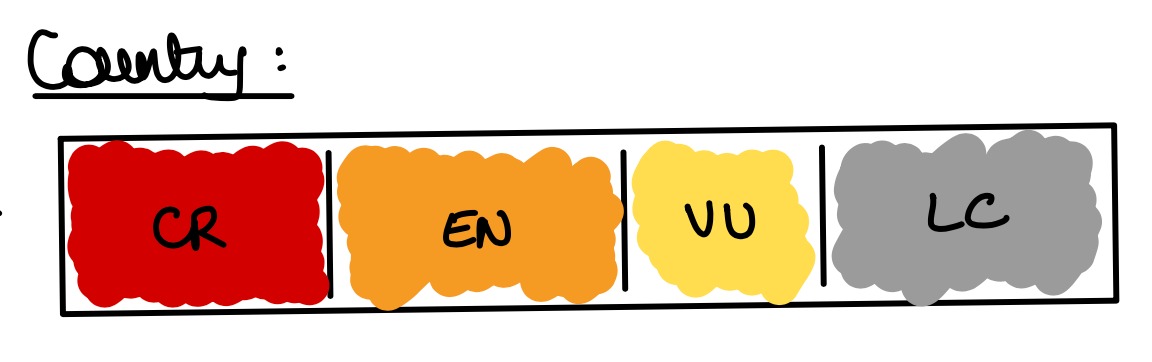 Country:
CR EN VU LC